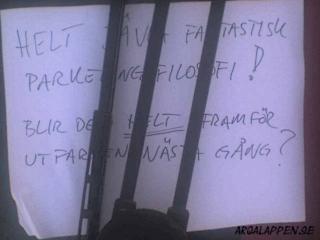 HELT JÄVLA FANTASTISK
PARKERINGSFILOSOFI!
BLIR DET HELT FRAMFÖR
UTFARTEN NÄSTA GÅNG?
ARGALAPPEN.SE